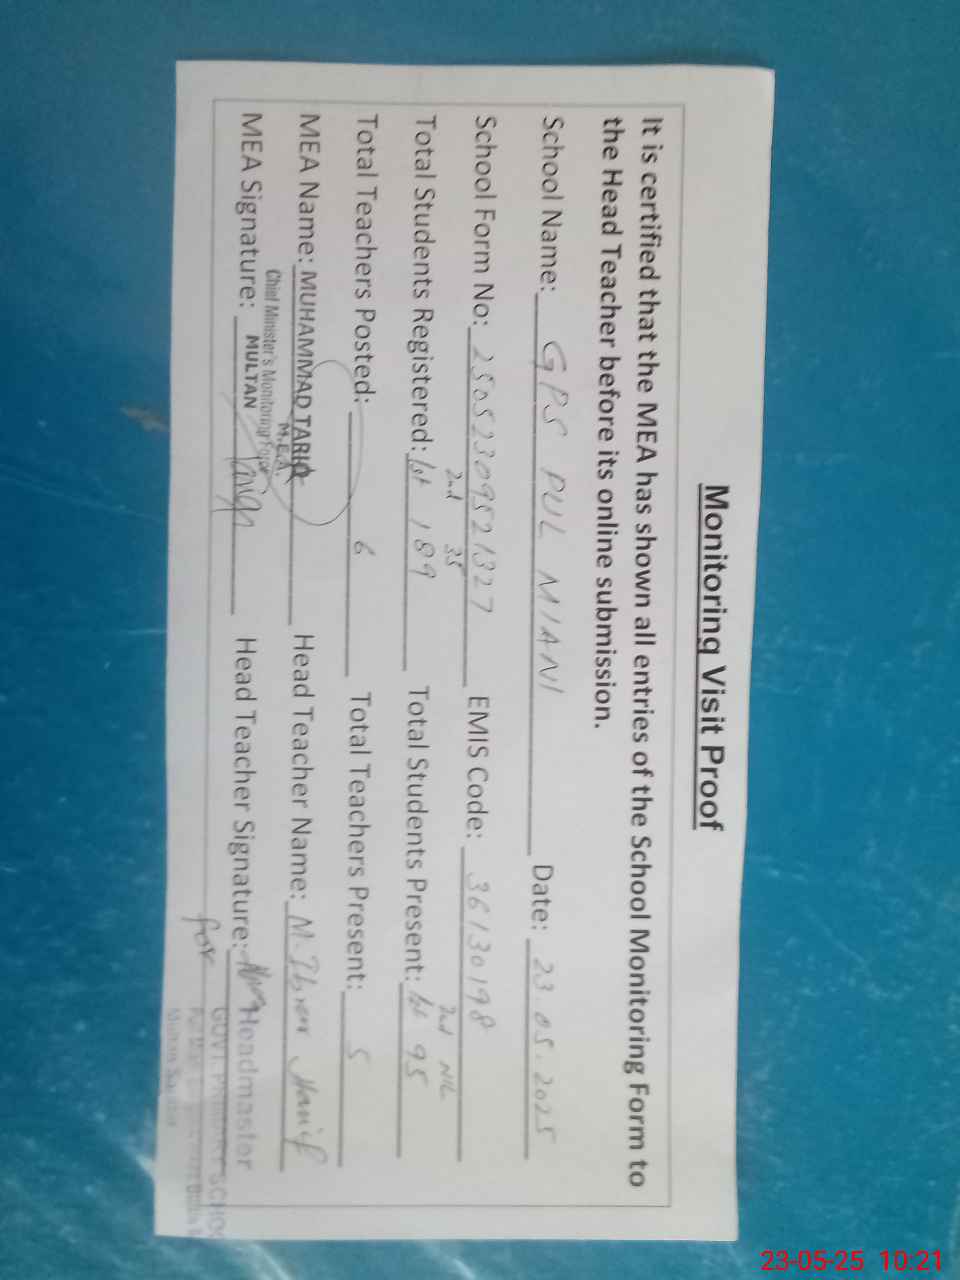 Monitoring Visit Proof
It is certified that the MEA has shown all entries of the School Monitoring Form to
the Head Teacher before its online submission.
School Name: GPS PUL MIANI Date: 23.05.2025
School Form No: 25052309521327 EMIS Code: 36130198
2nd 35 2nd NIL
Total Students Registered: 1st 189 Total Students Present: 1st 95
Total Teachers Posted: 6 Total Teachers Present: 5
MEA Name: MUHAMMAD TARIQ Head Teacher Name: M. Hanif
M.E.A.
Chief Minister's Monitoring Force
MEA Signature: MULTAN Head Teacher Signature: Headmaster
for GOVT. PRIMARY SCHOO
Multan Saddar
23-05-25 10:21